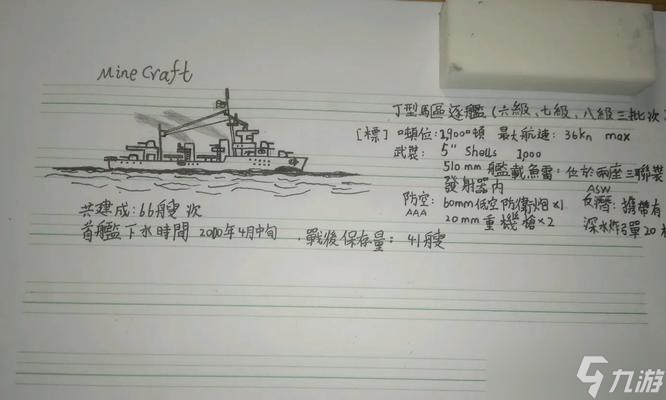 Mine Craft
丁型馬區逐艦(六級、七級、八級三批次
[標]噸位:1,900噸 最大航速: 36kn max
武裝: 5" Shells 1000
510mm艦載魚雷:位於兩座三聯裝
發射器內
ASW
防空: 60mm低空防衛炮×1 反潛:攜帶有
AAA 20mm重機槍×2 深水炸彈20
共建成:66艘次
首艦下水時間 2000年4月中旬 .戰後保存量: 41艘
九游